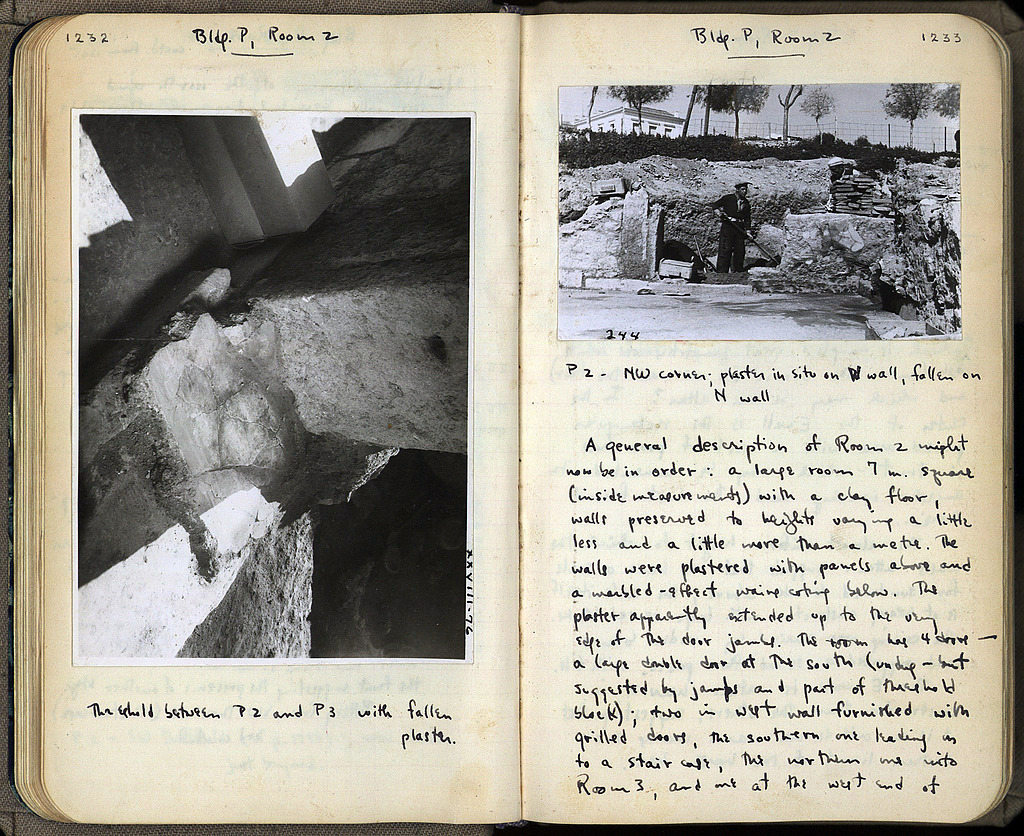 1232
Bldg. P, Room 2
XXVIII-76
Threshold between P2 and P3 with fallen
plaster.
Bldg. P, Room 2
1233
244
P2 - NW corner; plaster in situ on W wall, fallen on
N wall
A general description of Room 2 might
now be in order: a large room 7 m. square
(inside measurements) with a clay floor,
walls preserved to heights varying a little
less and a little more than a metre. The
walls were plastered with panels above and
a marbled-effect wainscoting below. The
plaster apparently extended up to the very
edge of the door jambs. The room has 4 doors —
a large double door at the south (undug - but
suggested by jambs and part of threshold
block); two in west wall furnished with
grilled doors, the southern one leading in
to a stair case, the northern one into
Room 3, and one at the west end of